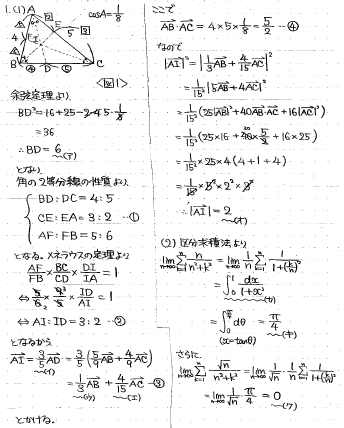 1.(1) A
cosA=1/8
B D C
<図1>
余弦定理より
BD²=16+25-2·4·5·1/8
=36
∴BD=6 〜(ア)
となり
角の2等分線の性質より、
BD:DC=4:5
CE:EA=3:2 ー①
AF:FB=5:6
となる。メネラウスの定理より
AF/FB × BC/CD × DI/IA = 1
⇔ AI:ID=3:2 ー②
となるから
AI=3/5 AD=3/5(5/9 AB+4/9 AC)
=1/3 AB+4/15 AC ー③
とかける。
ここで
AB·AC=4×5×1/8=5/2 ー④
なので
|AI|²=|1/3 AB+4/15 AC|²
=1/15²|5AB+4AC|²
=1/15²(25|AB|²+40AB·AC+16|AC|²)
=1/15²(25×16+40×5/2+16×25)
=1/15²×25×4(4+1+4)
∴|AI|=2 〜(オ)
(2) 区分求積法より
lim n→∞ Σ k=1 n n/(n²+k²)=lim n→∞ 1/n Σ k=1 n 1/(1+(k/n)²)
=∫0 1 dx/(1+x²)
=∫0 π/4 dθ=π/4 〜(キ)
(x=tanθ)
さらに
lim n→∞ Σ k=1 n √n/(n²+k²)=lim n→∞ 1/√n · 1/n Σ k=1 n 1/(1+(k/n)²)
=lim n→∞ 1/√n · π/4=0 〜(ク)